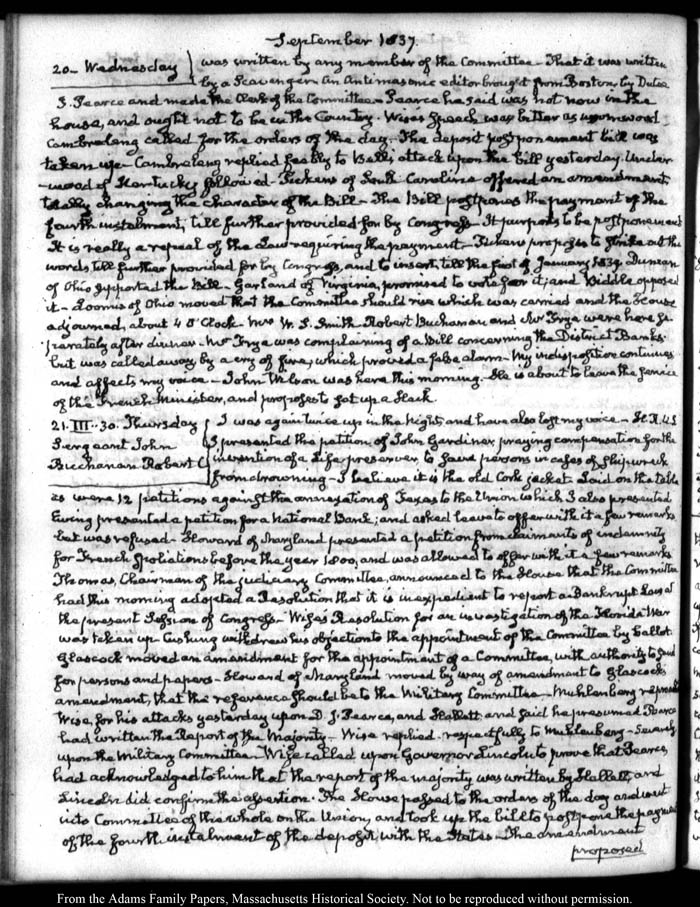 September 1837.
20. Wednesday was written by any member of the Committee. That it was written
by a Scavenger. An Antimasonic editor brought from Boston, by Dutee
J. Pearce and made the Clerk of the Committee. Pearce he said was not now in the
house, and ought not to be in the Country. Wise's speech was bitter as wormwood
Cambreleng called for the orders of the day. The deposit postponement bill was
taken up. Cambreleng replied feebly to Bell's attack upon the bill yesterday. Under
-wood of Kentucky followed. Pickens of South Carolina offered an amendment,
totally changing the character of the Bill. The Bill postpones the payment of the
fourth instalment, till further provided for by Congress. It purports to be postponement
It is really a repeal of the Law requiring the payment. Pickens proposes to strike out the
words till further provided for by Congress, and to insert, till the first of January 1839. Duncan
of Ohio supported the Bill. Garland of Virginia, promised to vote for it, and Biddle opposed
it. Loomis of Ohio moved that the Committee should rise which was carried and the House
adjourned, about 4 O'Clock. Mrs W. S. Smith. Robert Buchanan and Mr Frye were here se
parately after dinner. Mr Frye was complaining of a Bill concerning the District Banks
but was called away by a cry of fire, which proved a false alarm. My indisposition continues
and affects my voice. John was here this morning. He is about to leave the service
of the French Minister, and proposes to set up a Hack.
21. III.30. Thursday I was again twice up in the Night, and have also lost my voice. H. R. U.S
Sergeant John I presented the petition of John Gardiner, praying compensation for the
Buchanan Robert invention of a Life preserver to save persons in cases of Shipwreck
from drowning. I believe it is the old Cork jacket. Laid on the table
as were 12 petitions against the annexation of Texas to the Union which I also presented
Ewing presented a petition for a National Bank; and asked leave to offer with it a few remarks
but was refused. Howard of Maryland presented a petition from claimants of indemnity
for French Spoliations before the year 1800, and was allowed to offer with it a few remarks
Thomas, Chairman of the judiciary Committee, announced to the House that the Committee
had this morning adopted a Resolution that it is inexpedient to report a Bankrupt Law at
the present Session of Congress. Wise's Resolution for an investigation of the Florida War
was taken up. Cushing withdrew his objection to the appointment of the Committee by ballot
Glascock moved an amendment for the appointment of a Committee, with authority to send
for persons and papers. Howard of Maryland moved by way of amendment to Glascock's
amendment, that the reference should be to the Military Committee. Muhlenberg
Wise, for his attacks yesterday upon D. J. Pearce, and Hallett, and said he presumed Pearce
had written the Report of the Majority. Wise replied respectfully to Muhlenberg. Severely
upon the Military Committee. Wise called upon Governor Lincoln to prove that Pearce,
had acknowledged to him that the report of the majority was written by Hallett, and
Lincoln did confirm the assertion. The House passed to the orders of the day and went
into Committee of the whole on the Union, and took up the bill to postpone the payment
of the fourth instalment of the deposit with the States. The amendment
proposed
From the Adams Family Papers, Massachusetts Historical Society. Not to be reproduced without permission.